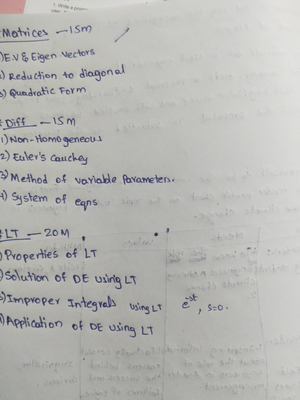 Matrices — 15m
1) E.V & Eigen Vectors
2) Reduction to diagonal
3) Quadratic Form
Diff — 15M
1) Non-Homogeneous
2) Euler's Cauchey
3) Method of variable Parameters.
4) System of eqns
LT — 20M
1) Properties of LT
2) Solution of DE using LT
3) Improper Integrals using LT e^-st, s=0.
4) Application of DE using LT